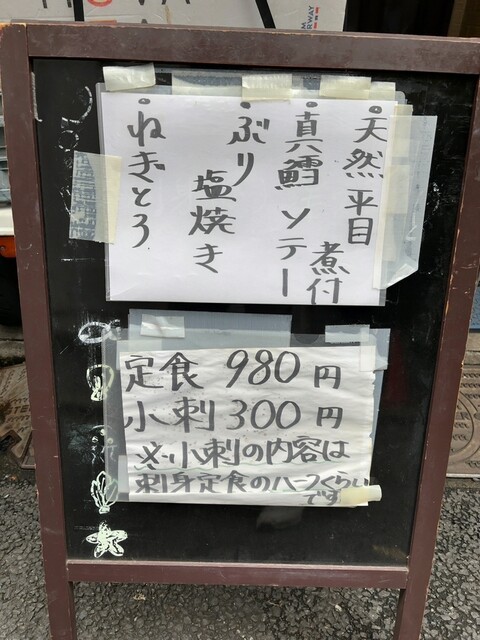 ・天然平目
煮付
・真鱈ソテー
・ぶり
塩焼き
・ねぎとろ
定食 980円
小刺 300円
※小刺の内容は
刺身定食のハーフくらい
です